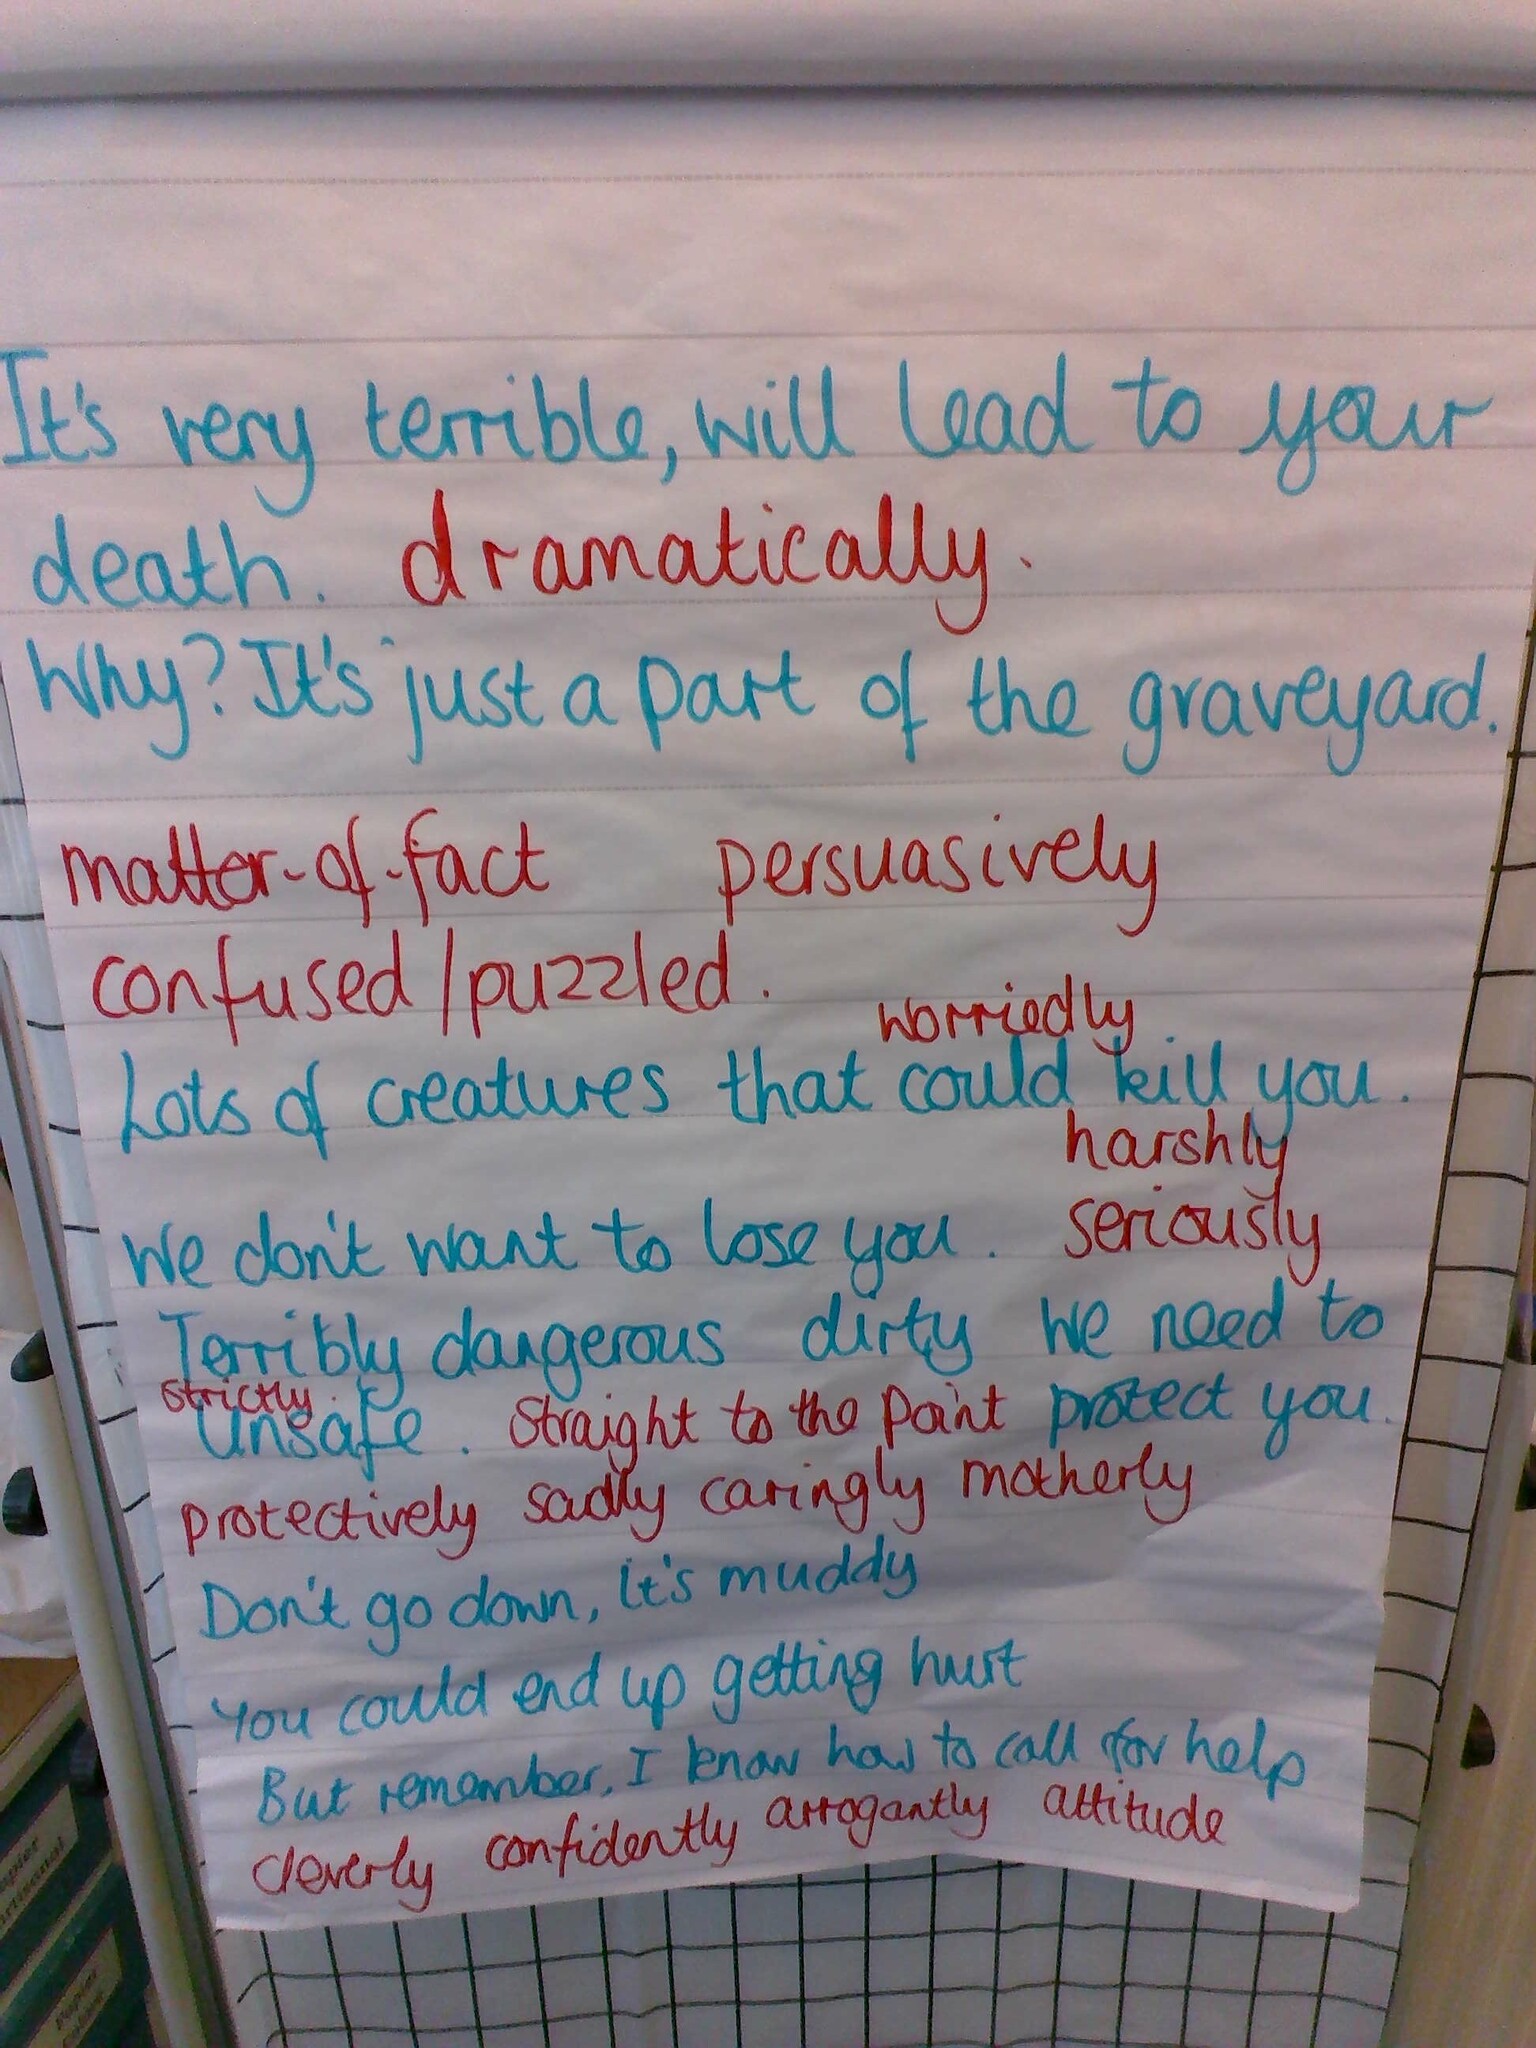 It's very terrible, will lead to your
death. dramatically.
Why? It's just a part of the graveyard.
matter-of-fact persuasively
confused/puzzled.
worriedly
Lots of creatures that could kill you.
harshly
We don't want to lose you. seriously
Terribly dangerous dirty We need to
strictly.
Unsafe. Straight to the point protect you.
protectively sadly caringly motherly
Don't go down, it's muddy
You could end up getting hurt
But remember, I know how to call for help
cleverly confidently arrogantly attitude